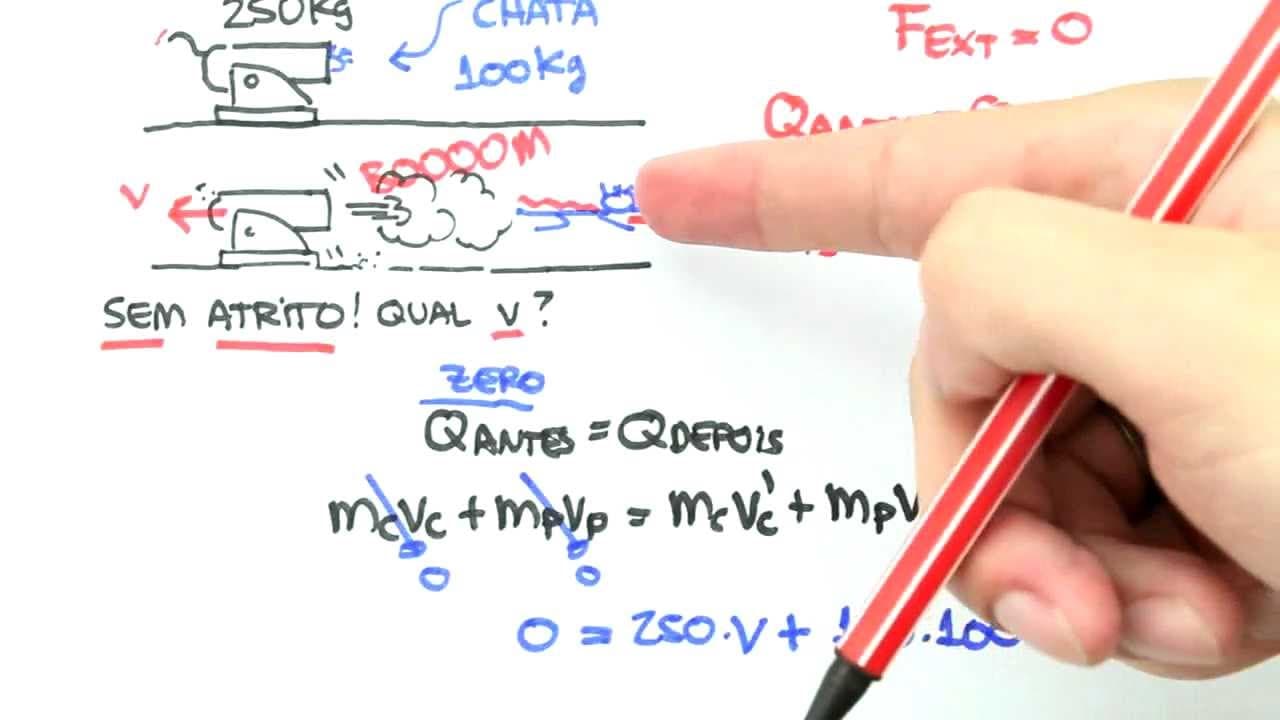 250Kg
CHATA
100Kg
FEXT = 0
V
SEM ATRITO! QUAL V?
ZERO
QANTES = QDEPOIS
mcVc + mpVp = mcVc' + mpV
0 0
0 = 250.V +